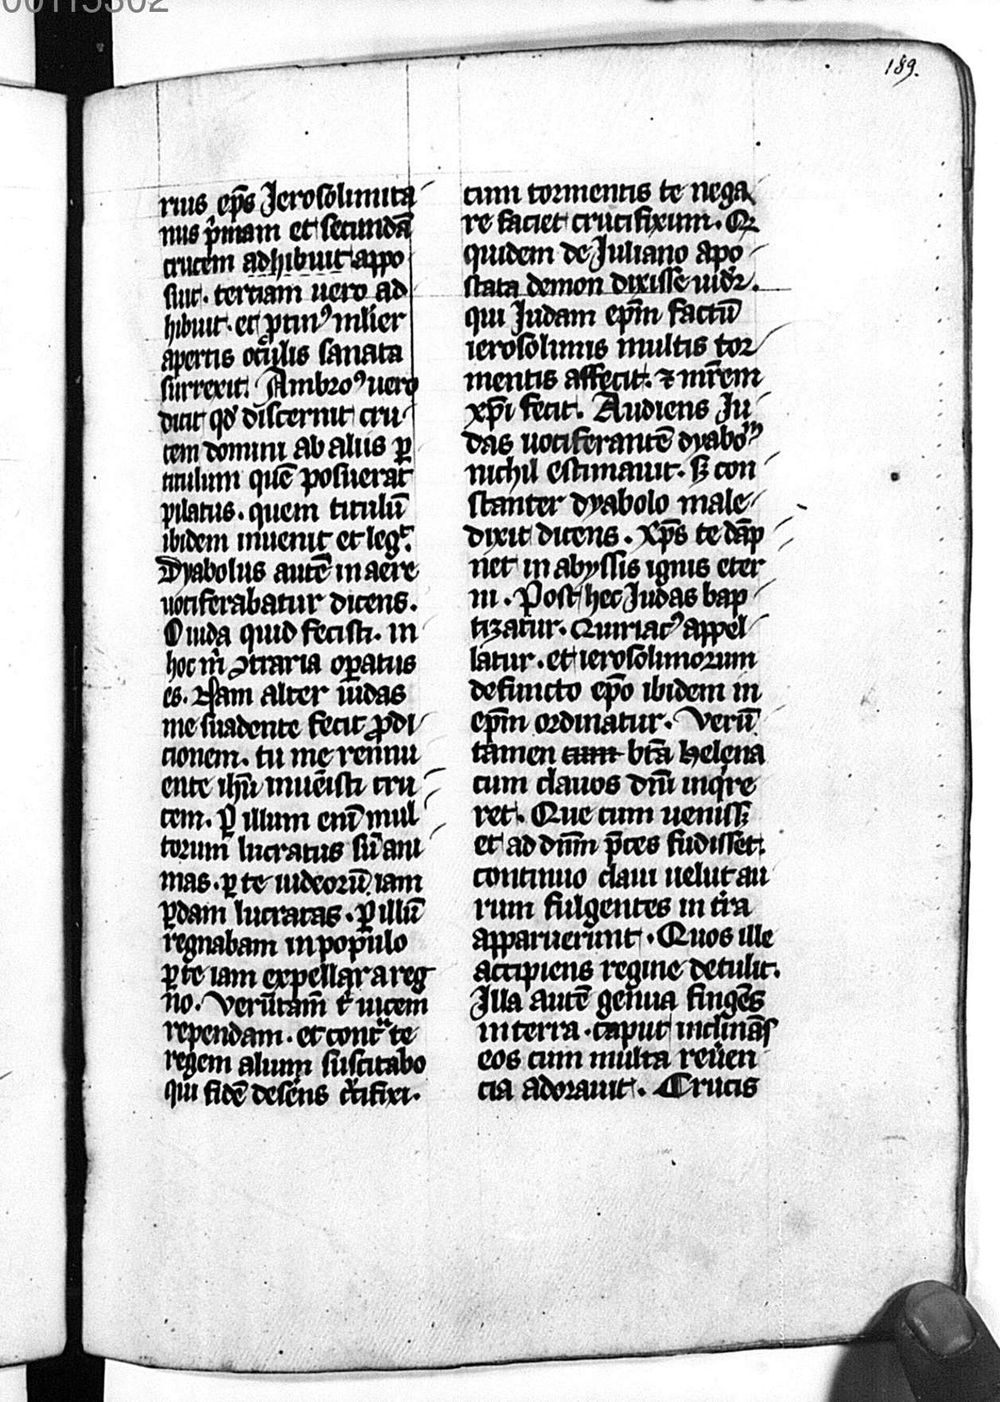 00115302
189.
rius ep̄s Jerosolimita
nus p̱̍mam et secundā
crucem adhibuit appo
suit. tertiam uero ad
hibuit. et ꝓtinꝰ mulier
apertis oculis sanata
surrexit. Ambroꝰ uero
dicit qd̓ discernit cru
cem domini ab aliis ꝑ
titulum quē posuerat
pilatus. quem titulū
ibidem inuenit et leg̓t.
Dyabolus autē in aere
uociferabatur dicens.
O iuda quid fecisti. in
hoc m̓ ꝯtraria oꝑatus
es. Nam alter iudas
me suadente fecit ꝓdi
cionem. tu me rennu
ente ih̄u inuēisti cru
cem. ꝑ illum enī mul
torum lucratus sū ani
mas. ꝑ te iudeorū iam
ꝑdam lucratas. ꝑ illū
regnabam in populo
ꝑ te iam expellar a reg
no. Verūtam̄ t̓ uicem
rependam. et cont̓ te
regem alium suscitabo
qui fidē desēns c̓cifixi.
cum tormentis te nega
re faciet crucifixum. Qꝛ
quidem de Juliano apo
stata demon dixisse uidr̄.
qui Judam ep̄m factū
ierosolimis multis tor
mentis affecit. ⁊ mr̄em
xp̄i fecit. Audiens Ju
das uociferantē dyaboᵐ
nichil estimauit. sꝫ con
stanter dyabolo male
dixit dicens. Xp̄s te dāp
net in abyssis ignis eter
ni. Post hec Judas bap
tizatur. Quiriacꝰ appel
latur. et ierosolimorum
defuncto ep̄o ibidem in
ep̄m ordinatur. Verū
tamen cum br̄a Helena
cum clauos dn̄i inq̓re
ret. Que cum uenissꝫ
et ad dn̄m p̄ces fudisset.
continuo claui uelut au
rum fulgentes in t̓ra
apparuerunt. Quos ille
accipiens regine detulit.
Illa autē genua fingēs
in terra. caput inclinās
eos cum multa reuēren
cia adorauit. Crucis